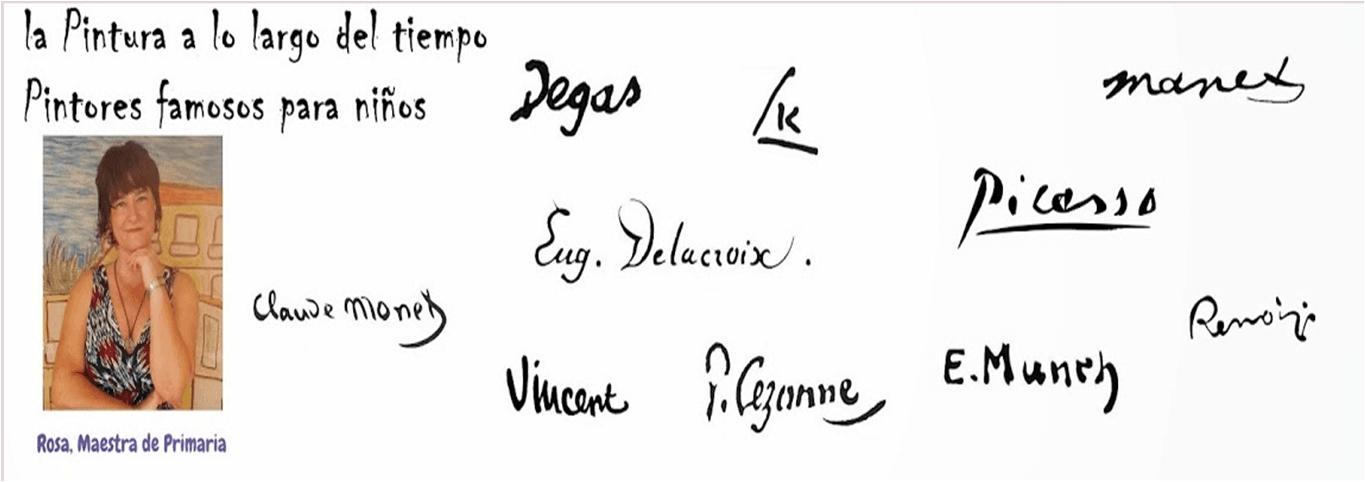 la Pintura a lo largo del tiempo
Pintores famosos para niños
Degas
/K
manet
Picasso
Eug. Delacroix.
Claude Monet
Renoir
Vincent
P. Cezanne
E. Munch
Rosa, Maestra de Primaria